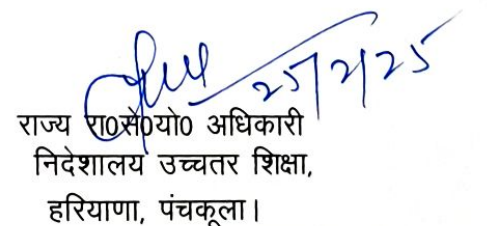 25/2/25
राज्य रा0से0यो0 अधिकारी
निदेशालय उच्चतर शिक्षा,
हरियाणा, पंचकूला।